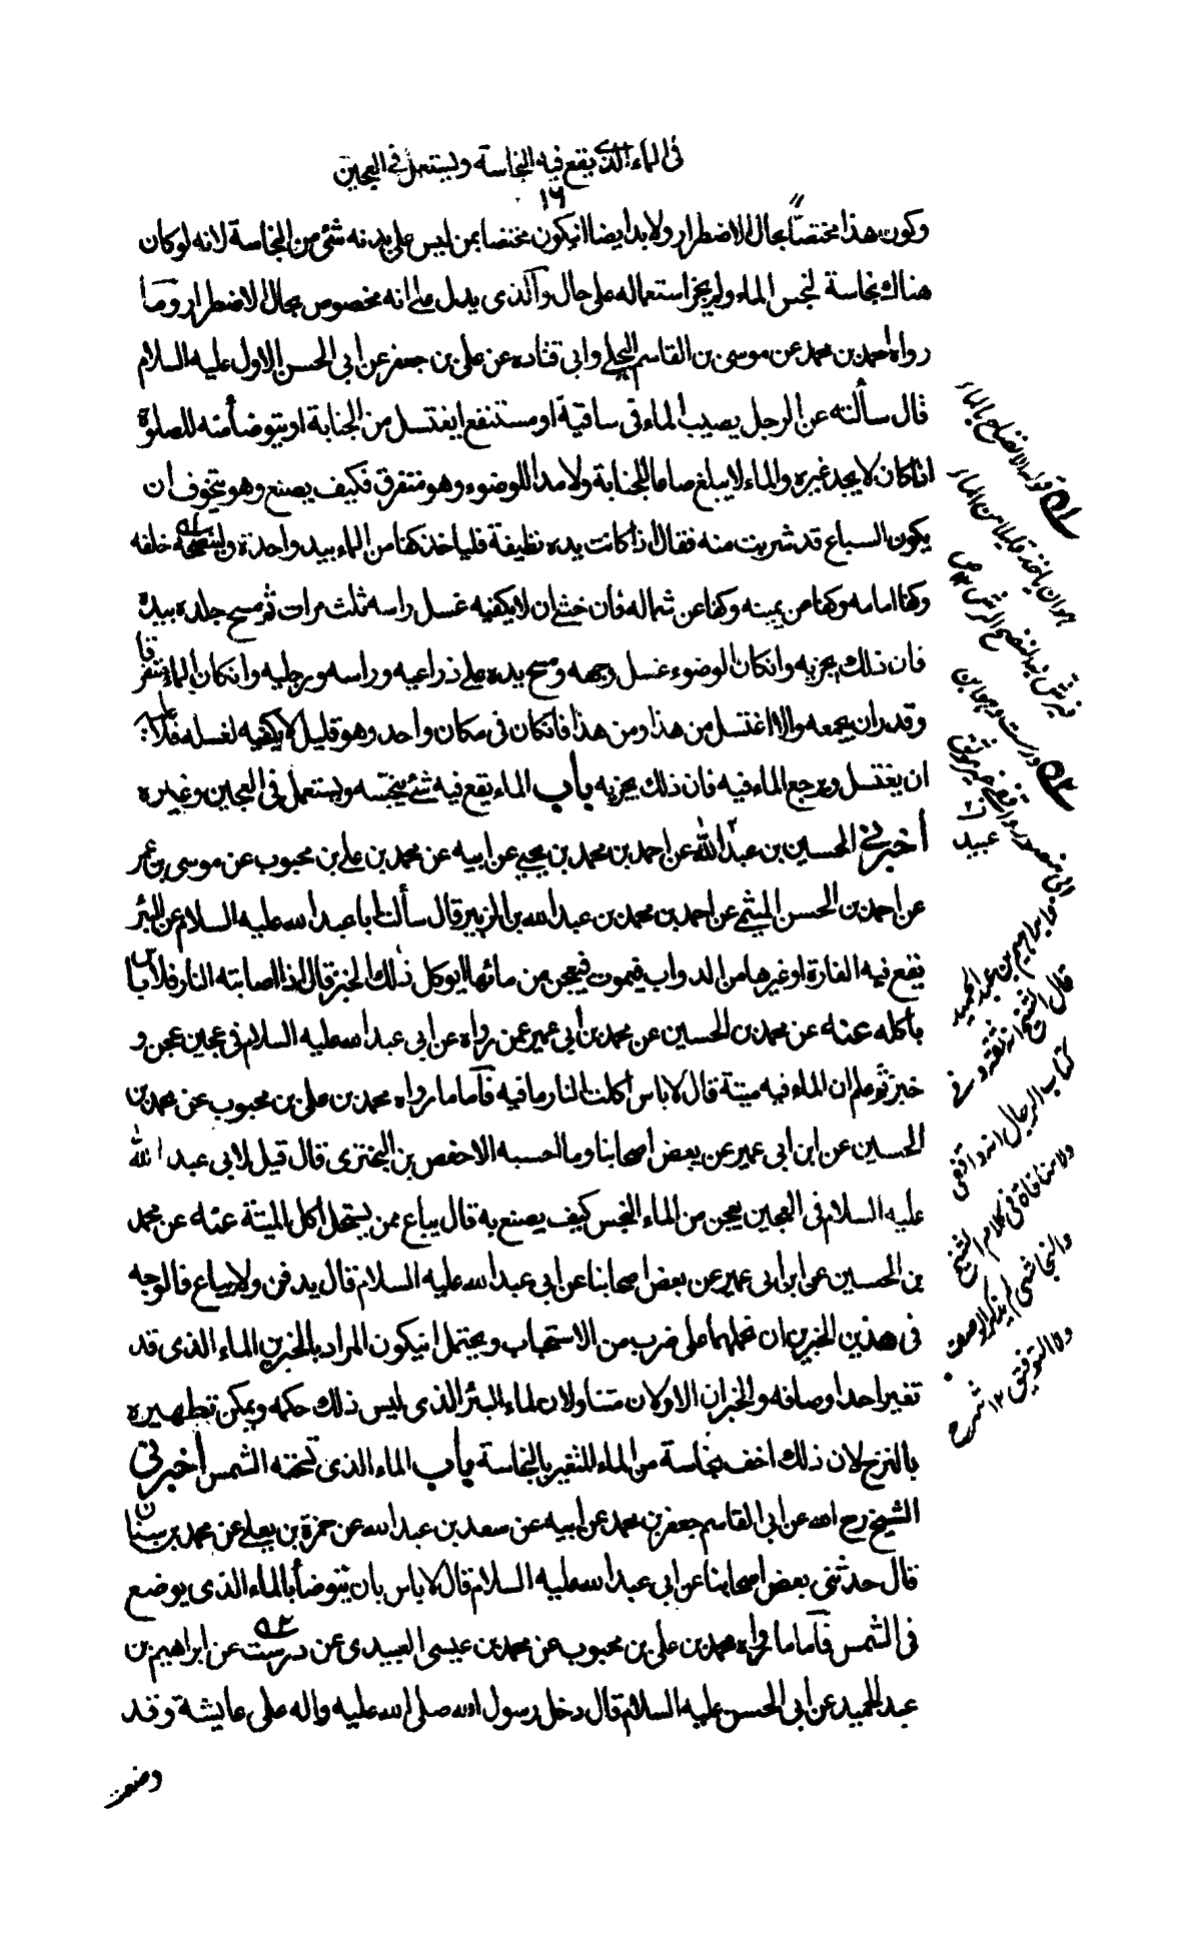 فى الماء الذى يقع فيه النجاسة ويستعمل فى العجين
١٦
وكون هذا مختصًا بحال الاضطرار ولابد ايضا ان يكون مختصا بمن ليس على بدنه شئ من النجاسة لانه لو كان
هناك نجاسة لنجس الماء ولم يجز استعماله على حال والذى يدل على انه مخصوص بحال الاضطرار وما
رواه احمد بن محمد عن موسى بن القاسم البجلى وابى قتاده عن على بن جعفر عن ابى الحسن الاول عليه السلام
قال سألته عن الرجل يصيب الماء فى ساقية او مستنقع ايغتسل من الجنابة او يتوضأ منه للصلوة
اذا كان لا يجد غيره والماء لا يبلغ صاعا للجنابة ولا مدا للوضوء وهو متفرق فكيف يصنع وهو يتخوف ان
يكون السباع قد شربت منه فقال اذا كانت يده نظيفة فلياخذ كفا من الماء بيد واحدة ولينضحه خلفه
وكفا امامه وكفا عن يمينه وكفا عن شماله فان خشى ان لا يكفيه غسل راسه ثلث مرات ثم مسح جلده بيده
فان ذلك يجزيه وان كان الوضوء غسل وجهه ومسح يده على ذراعيه وراسه ورجليه وان كان الماء متفرقا
وقدر ان يجمعه والا اغتسل من هذا ومن هذا فان كان فى مكان واحد وهو قليل لا يكفيه لغسله فلا عليه
ان يغتسل ويرجع الماء فيه فان ذلك يجزيه باب الماء يقع فيه شئ ينجسه ويستعمل فى العجين وغيره
أخبرنى الحسين بن عبد الله عن احمد بن محمد بن يحيى عن ابيه عن محمد بن على بن محبوب عن موسى بن عمر
عن احمد بن الحسن الميثمى عن احمد بن محمد بن عبد الله بن الزبير قال سألت ابا عبد الله عليه السلام عن البئر
يقع فيه الفارة او غيرها من الدواب فيموت فيعجن من مائها ايوكل ذلك الخبز قال اذا اصابته النار فلا باس
باكله عنه عن محمد بن الحسين عن محمد بن أبى عمير عمن رواه عن ابى عبد الله عليه السلام فى عجين عجن و
خبز ثم علم ان الماء فيه ميتة قال لا باس اكلت النار ما فيه فأما ما رواه محمد بن على بن محبوب عن محمد بن
الحسين عن ابن ابى عمير عن بعض اصحابنا وما احسبه الا حفص بن البخترى قال قيل لابى عبد الله
عليه السلام فى العجين يعجن من الماء النجس كيف يصنع به قال يباع ممن يستحل اكل الميتة عنه عن محمد
بن الحسين عن ابن ابى عمير عن بعض اصحابنا عن ابى عبد الله عليه السلام قال يدفن ولا يباع فالوجه
فى هذين الخبرين ان نحملهما على ضرب من الاستحباب ويحتمل ان يكون المراد بالخبرين الماء الذى قد
تغير احد اوصافه والخبران الاولان متناولان لماء البئر الذى ليس ذلك حكمه ويمكن تطهيره
بالنزح لان ذلك اخف نجاسة من الماء المتغير بالنجاسة باب الماء الذى تسخنه الشمس أخبرنى
الشيخ رحمه الله عن ابى القاسم جعفر بن محمد عن ابيه عن سعد بن عبد الله عن حمزة بن يعلى عن محمد بن سنان
قال حدثنى بعض اصحابنا عن ابى عبد الله عليه السلام قال لا باس بان يتوضأ بالماء الذى يوضع
فى الشمس فأما ما رواه محمد بن على بن محبوب عن محمد بن عيسى العبيدى عن درست عن ابراهيم بن
عبد الحميد عن ابى الحسن عليه السلام قال دخل رسول الله صلى الله عليه واله على عايشة وقد
وضعت
هو ان ياخذ قليلا من الماء
درست هو بن ابى منصور واقفى
عبيد
وابراهيم بن عبد الحميد
قال الشيخ انه ثقة وفى
كتاب الرجال انه واقفى
ولا منافاة فى كلام الشيخ
والنجاشى لم يذكر الوصف
والله الموفق ١٢ شرح